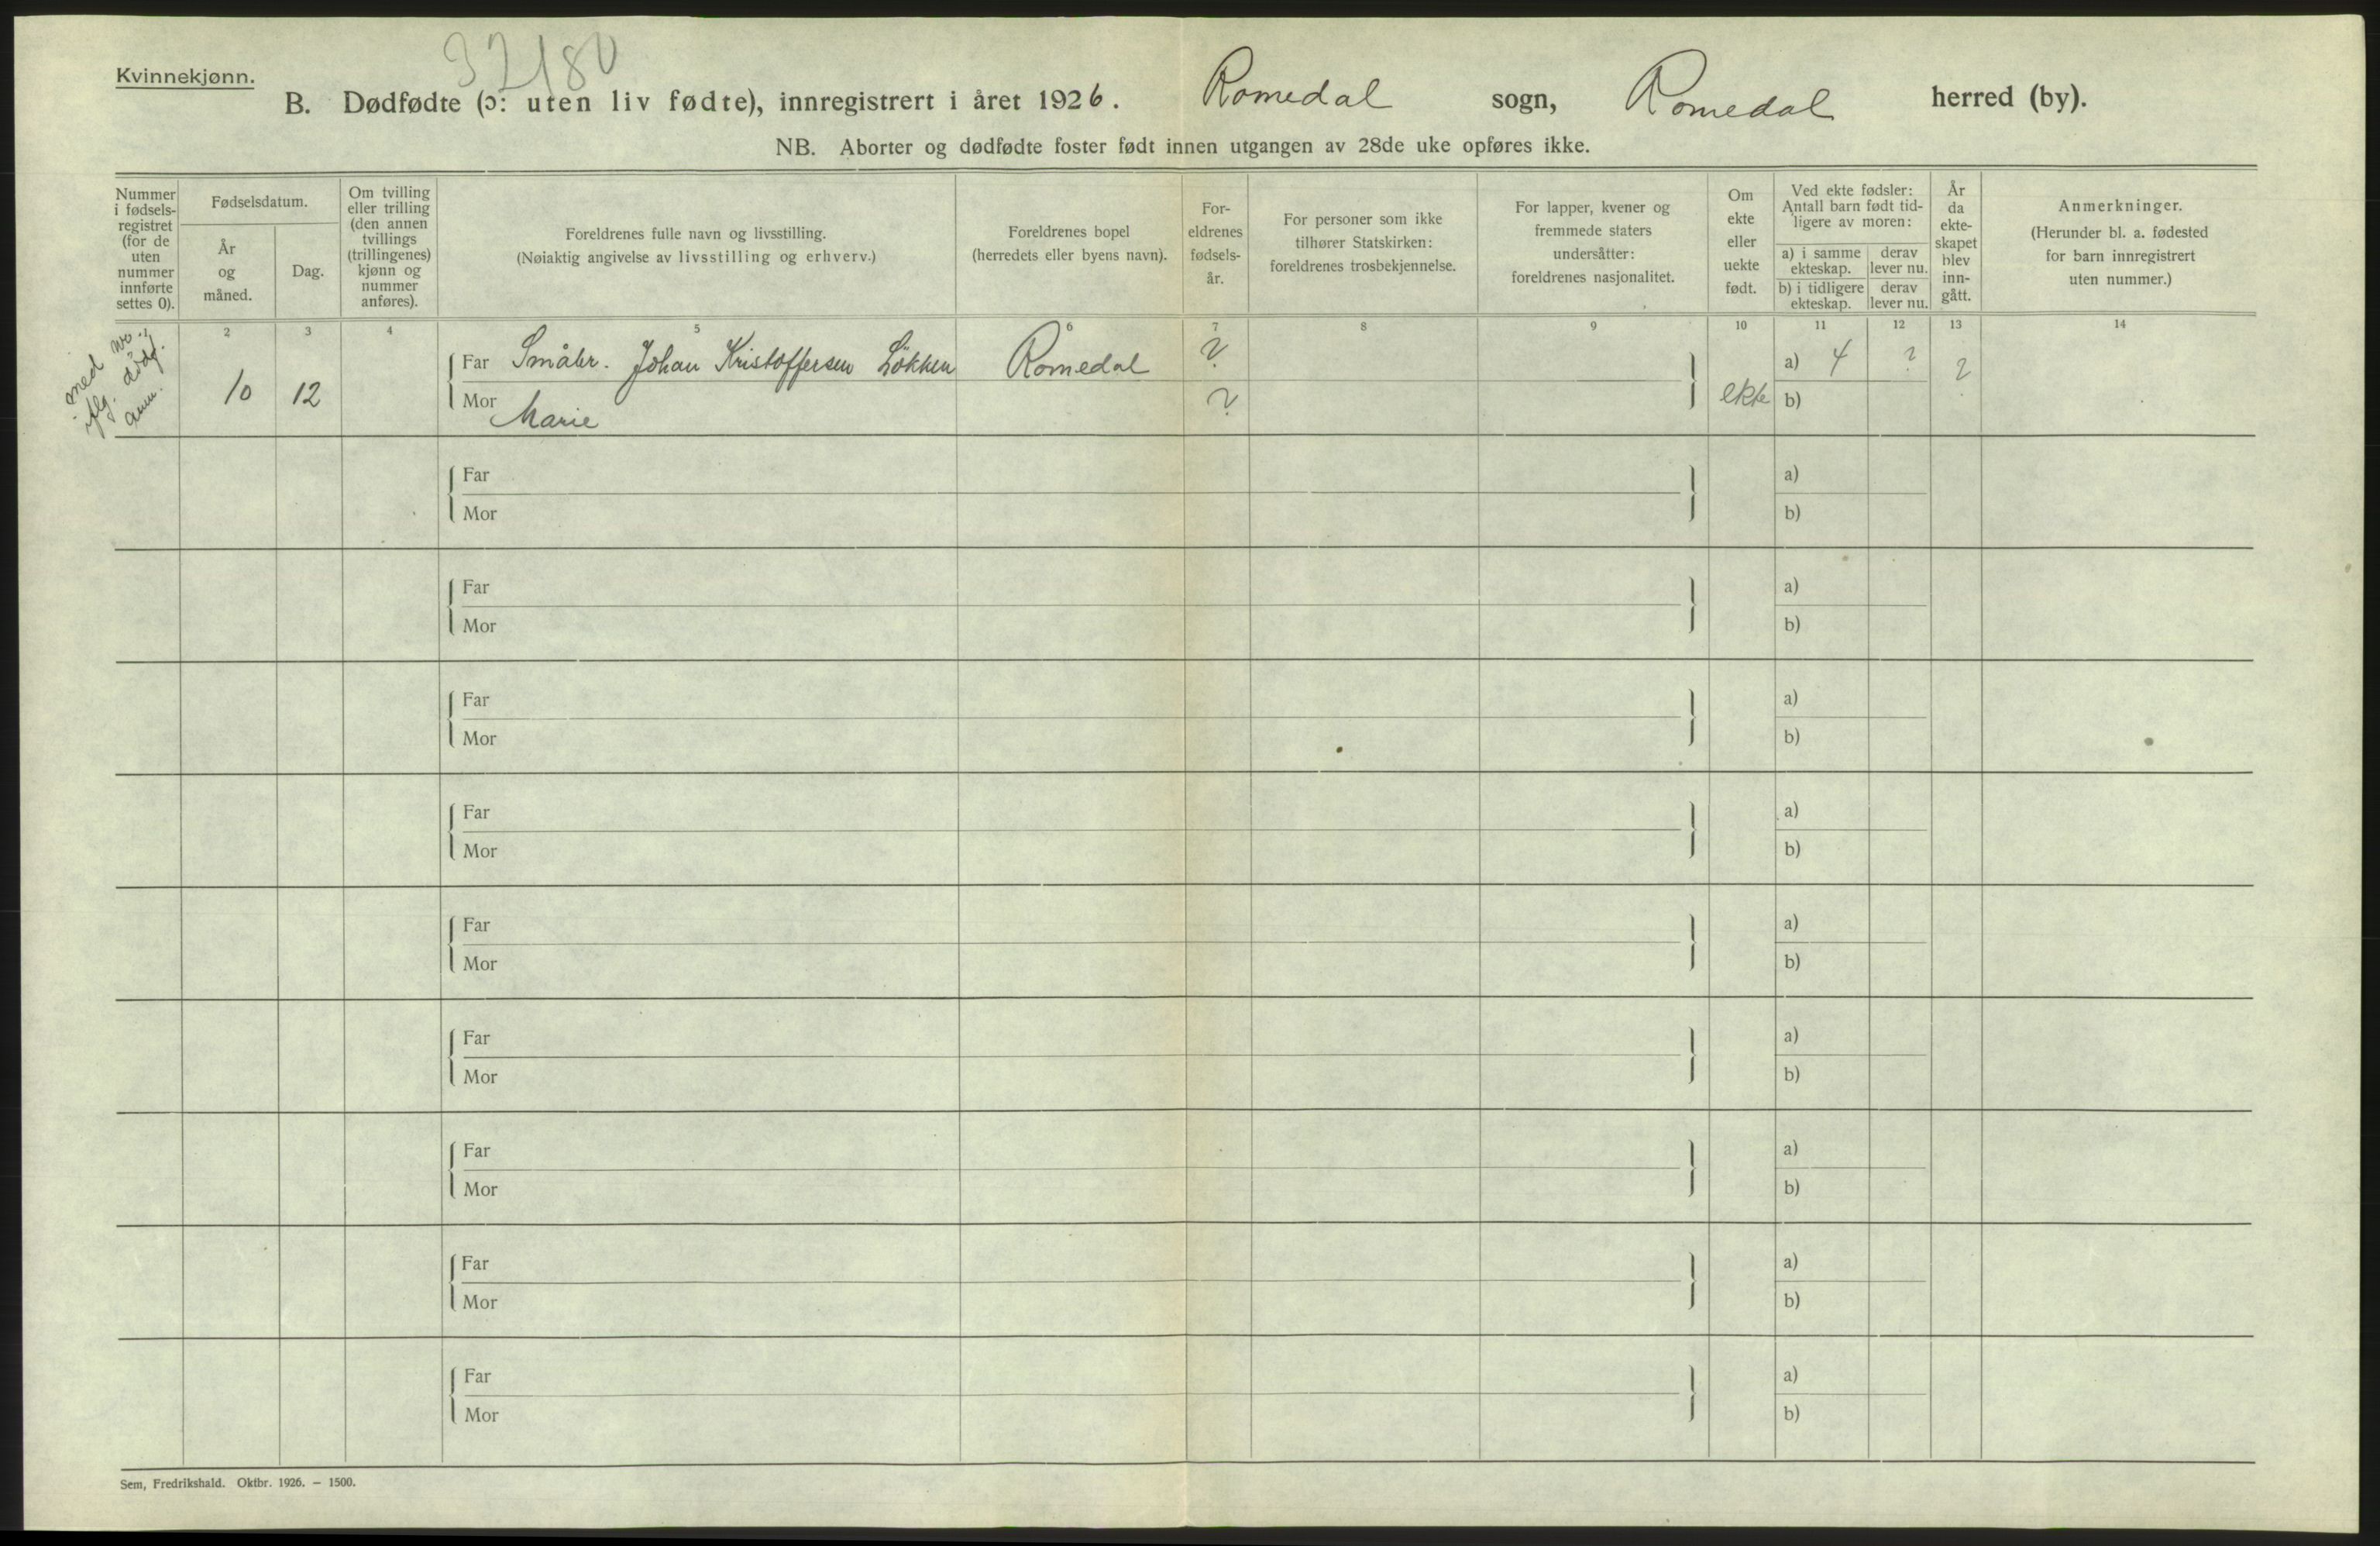 32180
Kvinnekjønn.
B. Dødfødte (ɔ: uten liv fødte), innregistrert i året 1926. Romedal sogn, Romedal herred (by).
NB. Aborter og dødfødte foster født innen utgangen av 28de uke opføres ikke.
Nummer
i fødsels-
registret
(for de
uten
nummer
innførte
settes 0).
Fødselsdatum.
År
og
måned.
Dag.
Om tvilling
eller trilling
(den annen
tvillings
(trillingenes)
kjønn og
nummer
anføres).
Foreldrenes fulle navn og livsstilling.
(Nøiaktig angivelse av livsstilling og erhverv.)
Foreldrenes bopel
(herredets eller byens navn).
For-
eldrenes
fødsels-
år.
For personer som ikke
tilhører Statskirken:
foreldrenes trosbekjennelse.
For lapper, kvener og
fremmede staters
undersåtter:
foreldrenes nasjonalitet.
Om
ekte
eller
uekte
født.
Ved ekte fødsler:
Antall barn født tid-
ligere av moren:
a) i samme
ekteskap.
derav
lever nu.
b) i tidligere
ekteskap.
derav
lever nu.
År
da
ekte-
skapet
blev
inn-
gått.
Anmerkninger.
(Herunder bl. a. fødested
for barn innregistrert
uten nummer.)
1 2 3 4 5 6 7 8 9 10 11 12 13 14
med
iflg. dødf.
anm.
10 12
Far Småbr. Johan Kristoffersen Løkken Romedal ? a) 4 ? ?
Mor Marie ? ekte b)
Far a)
Mor b)
Far a)
Mor b)
Far a)
Mor b)
Far a)
Mor b)
Far a)
Mor b)
Far a)
Mor b)
Far a)
Mor b)
Far a)
Mor b)
Far a)
Mor b)
Sem, Fredrikshald. Oktbr. 1926. — 1500.